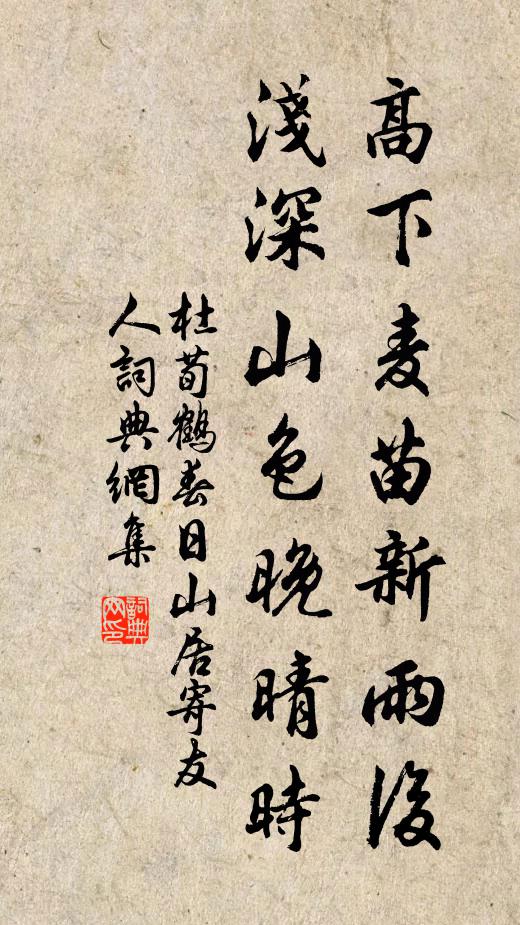 高下麦苗新雨後
淺深山色晚晴時
杜荀鶴春日山居寄友
人詞典網集
詞典
网印